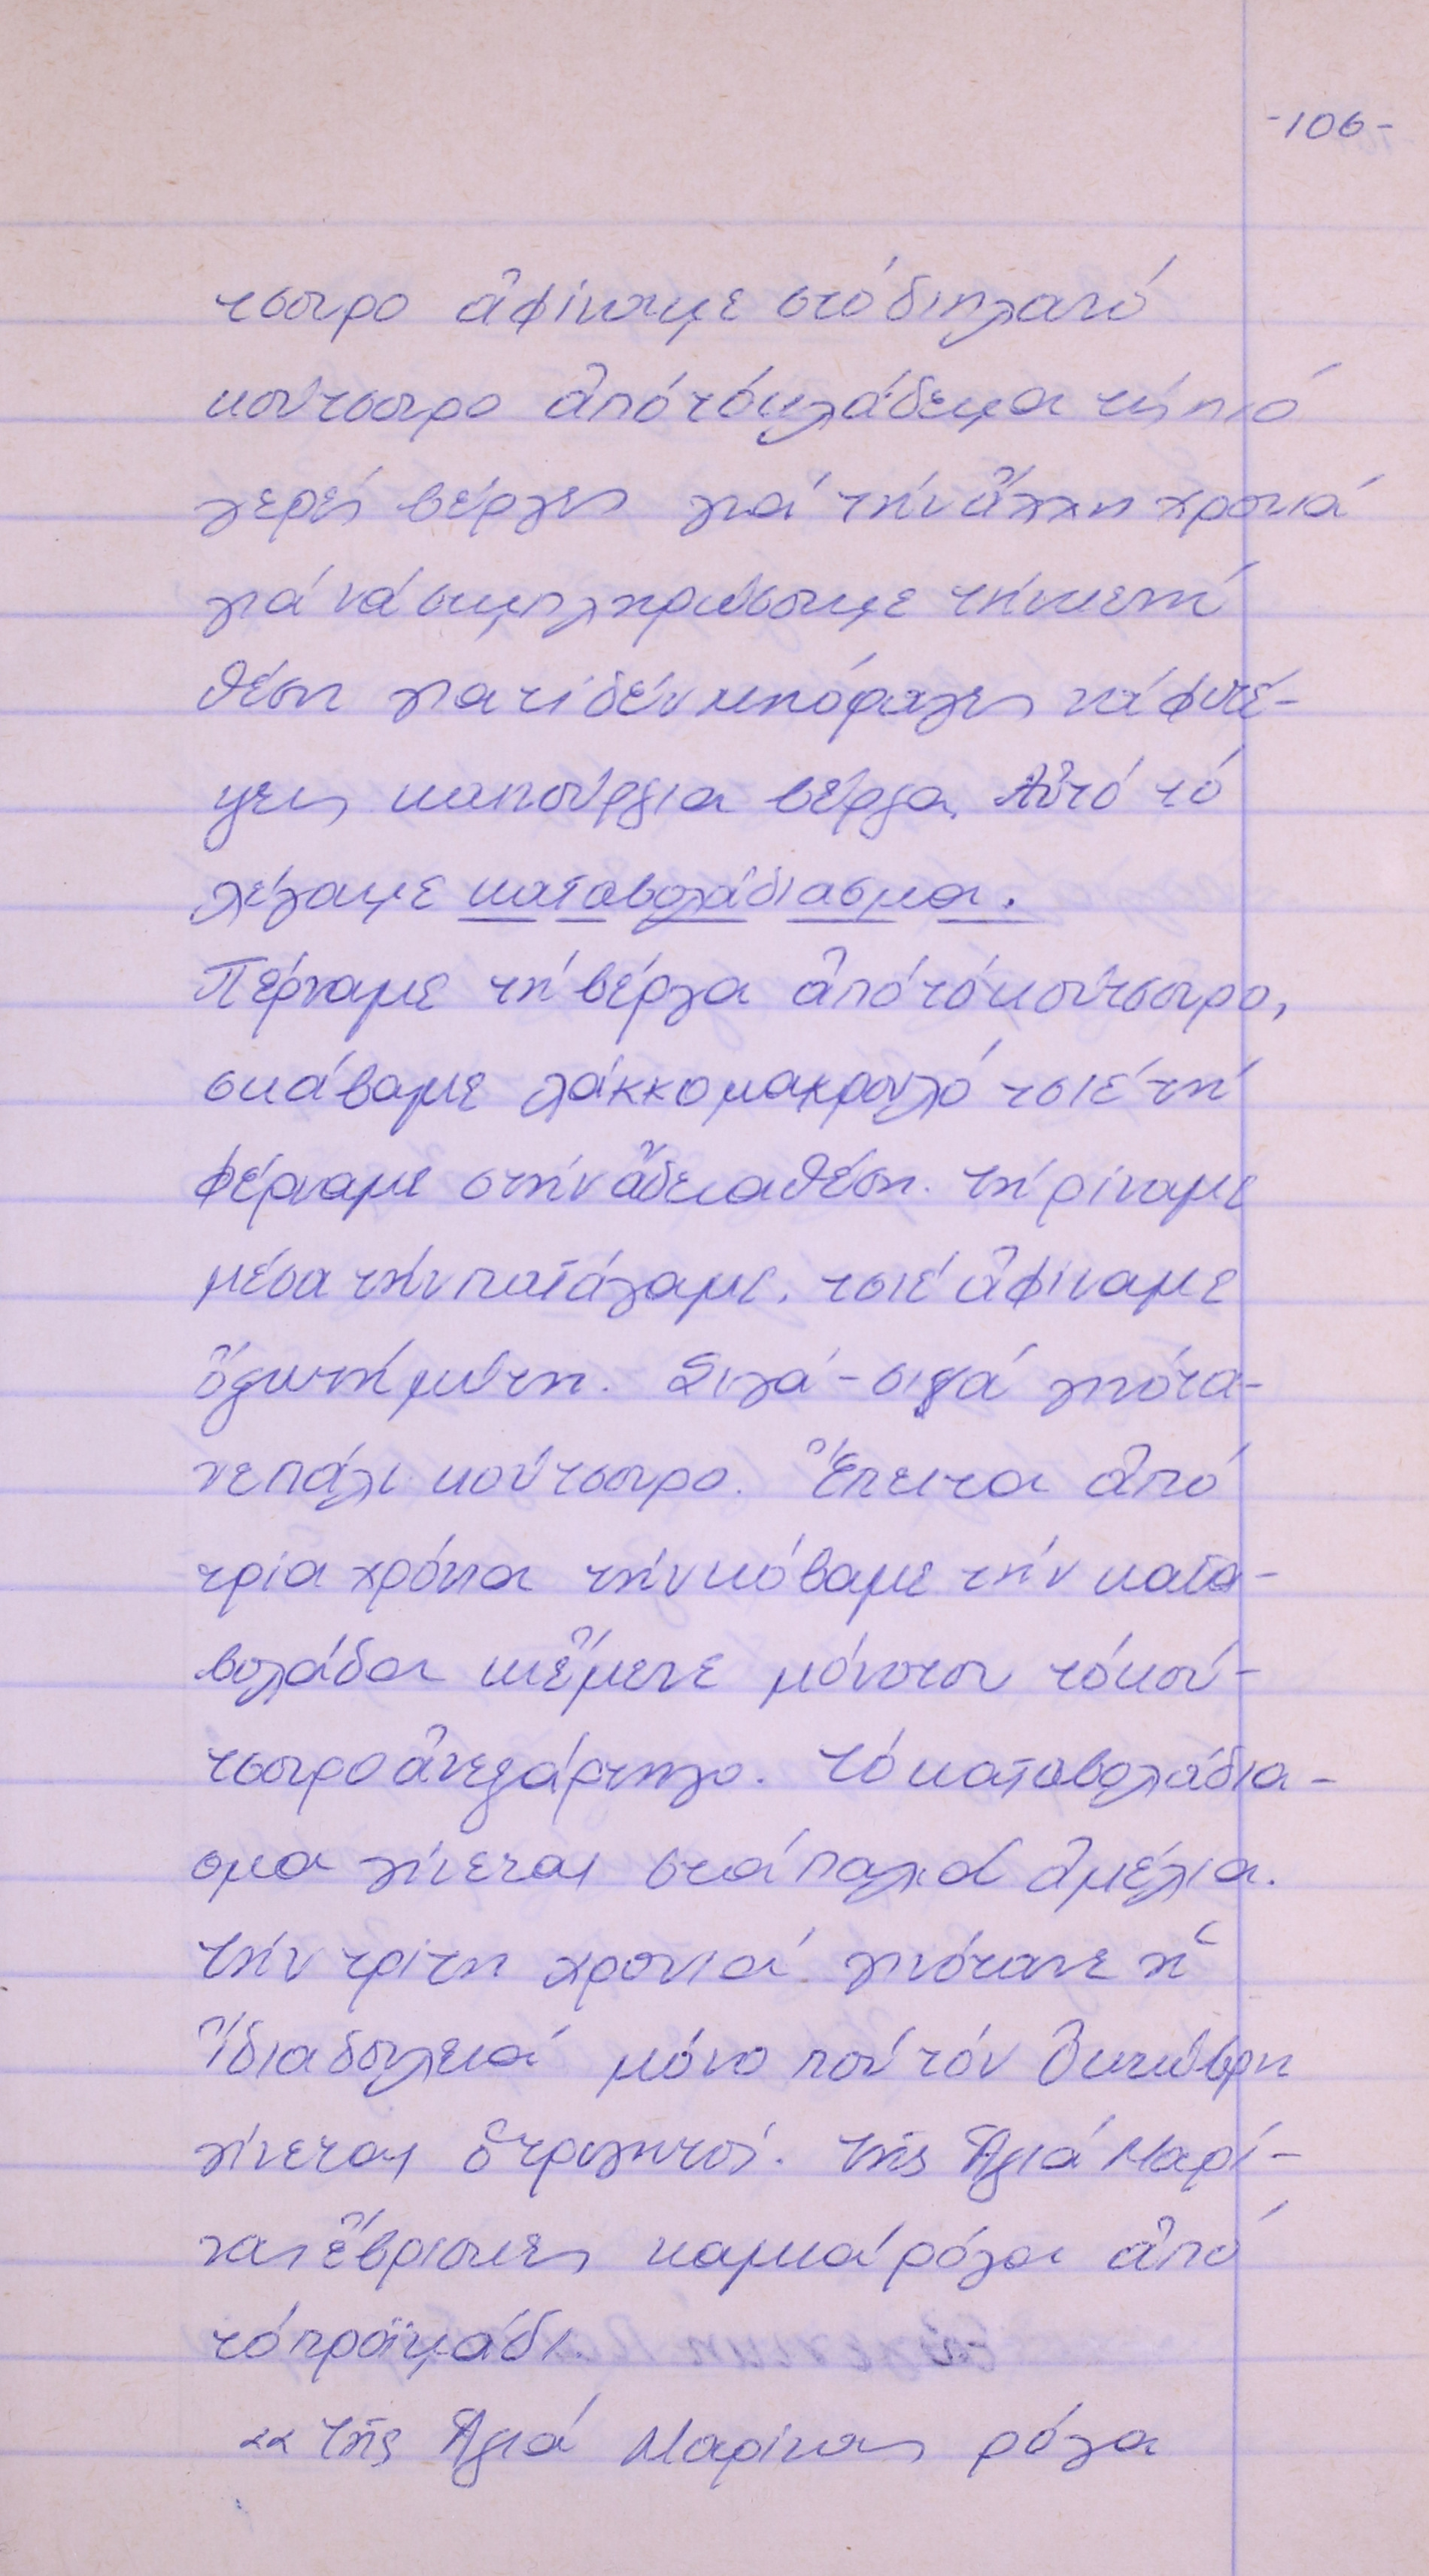 -106-
τσουρο ἀφίναμε στό διπλανό
κούτσουρο ἀπό τό κλάδεμα τίς πιό
γερές βέργες γιά τήν ἄλλη χρονιά
γιά νά συμπληρώσουμε τήν κενή
θέση γιατί δέν μπόραγες νά φυτέ-
ψεις καινούργια βέργα. Αὐτό τό
λέγαμε καταβολάδιασμα.
Πέρναμε τή βέργα ἀπό τό κούτσουρο,
σκάβαμε λάκκο μακρουλό τσιέ τή
φέρναμε στήν ἄδεια θέση. τή ρίναμε
μέσα τήν πατάγαμε, τσιέ ἀφίναμε
ὄξω τή μύτη. Σιγά-σιγά γινότα-
νε πάλι κούτσουρο. Ἔπειτα ἀπό
τρία χρόνια τήν κόβαμε τήν κατα-
βολάδα κι ἔμενε μόνο του τό κού-
τσουρο ἀνεξάρτητο. τό καταβολάδια-
σμα γίνεται στά παλιά ἀμπέλια.
τήν τρίτη χρονιά γινότανε ἡ
ἴδια δουλειά μόνο πού τόν Ὀκτώβρη
γίνεται ὁ τρυγητός. τῆς Ἁγιά Μαρί-
νας ἔβρισκες καμιά ρόγα ἀπό
τό πρωϊμάδι.
«« τῆς Ἁγιά Μαρίνας ρόγα